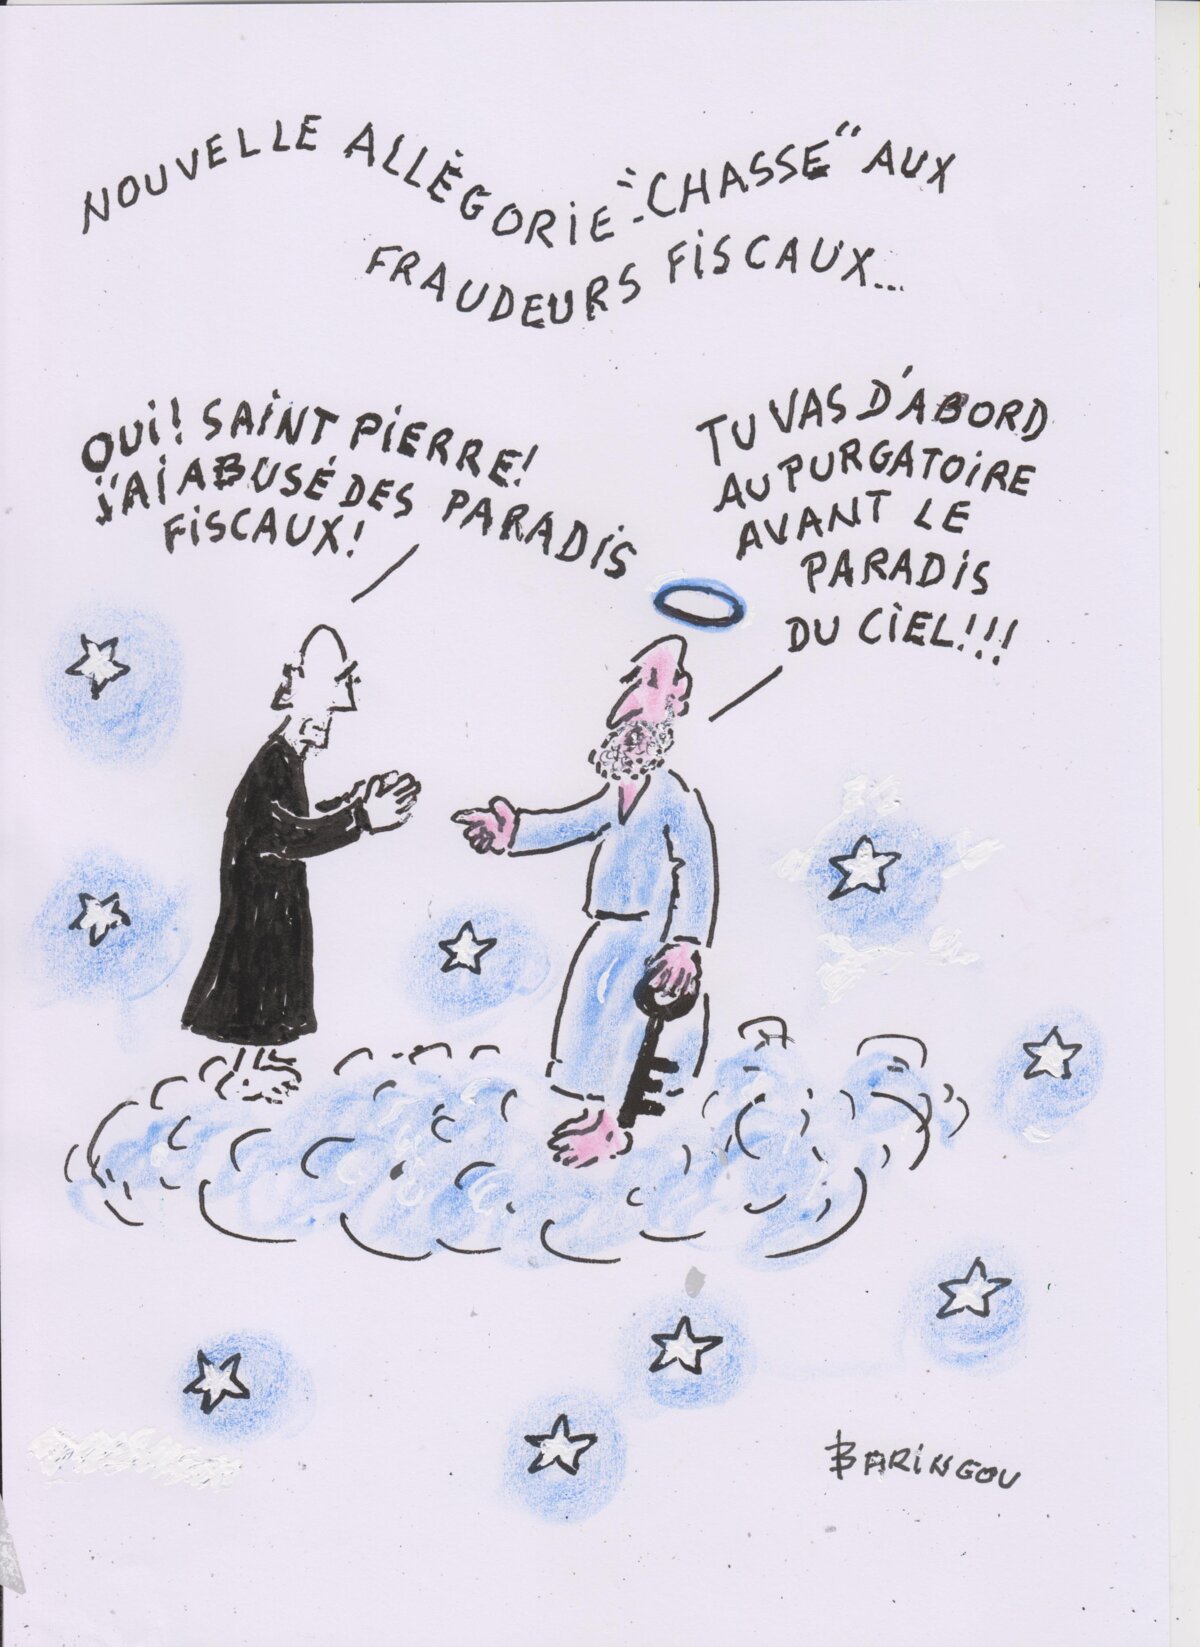 NOUVELLE ALLÉGORIE-"CHASSE" AUX
FRAUDEURS FISCAUX...
OUI! SAINT PIERRE!
J'AI ABUSÉ DES PARADIS
FISCAUX!
TU VAS D'ABORD
AU PURGATOIRE
AVANT LE
PARADIS
DU CIEL!!!
BARINGOU